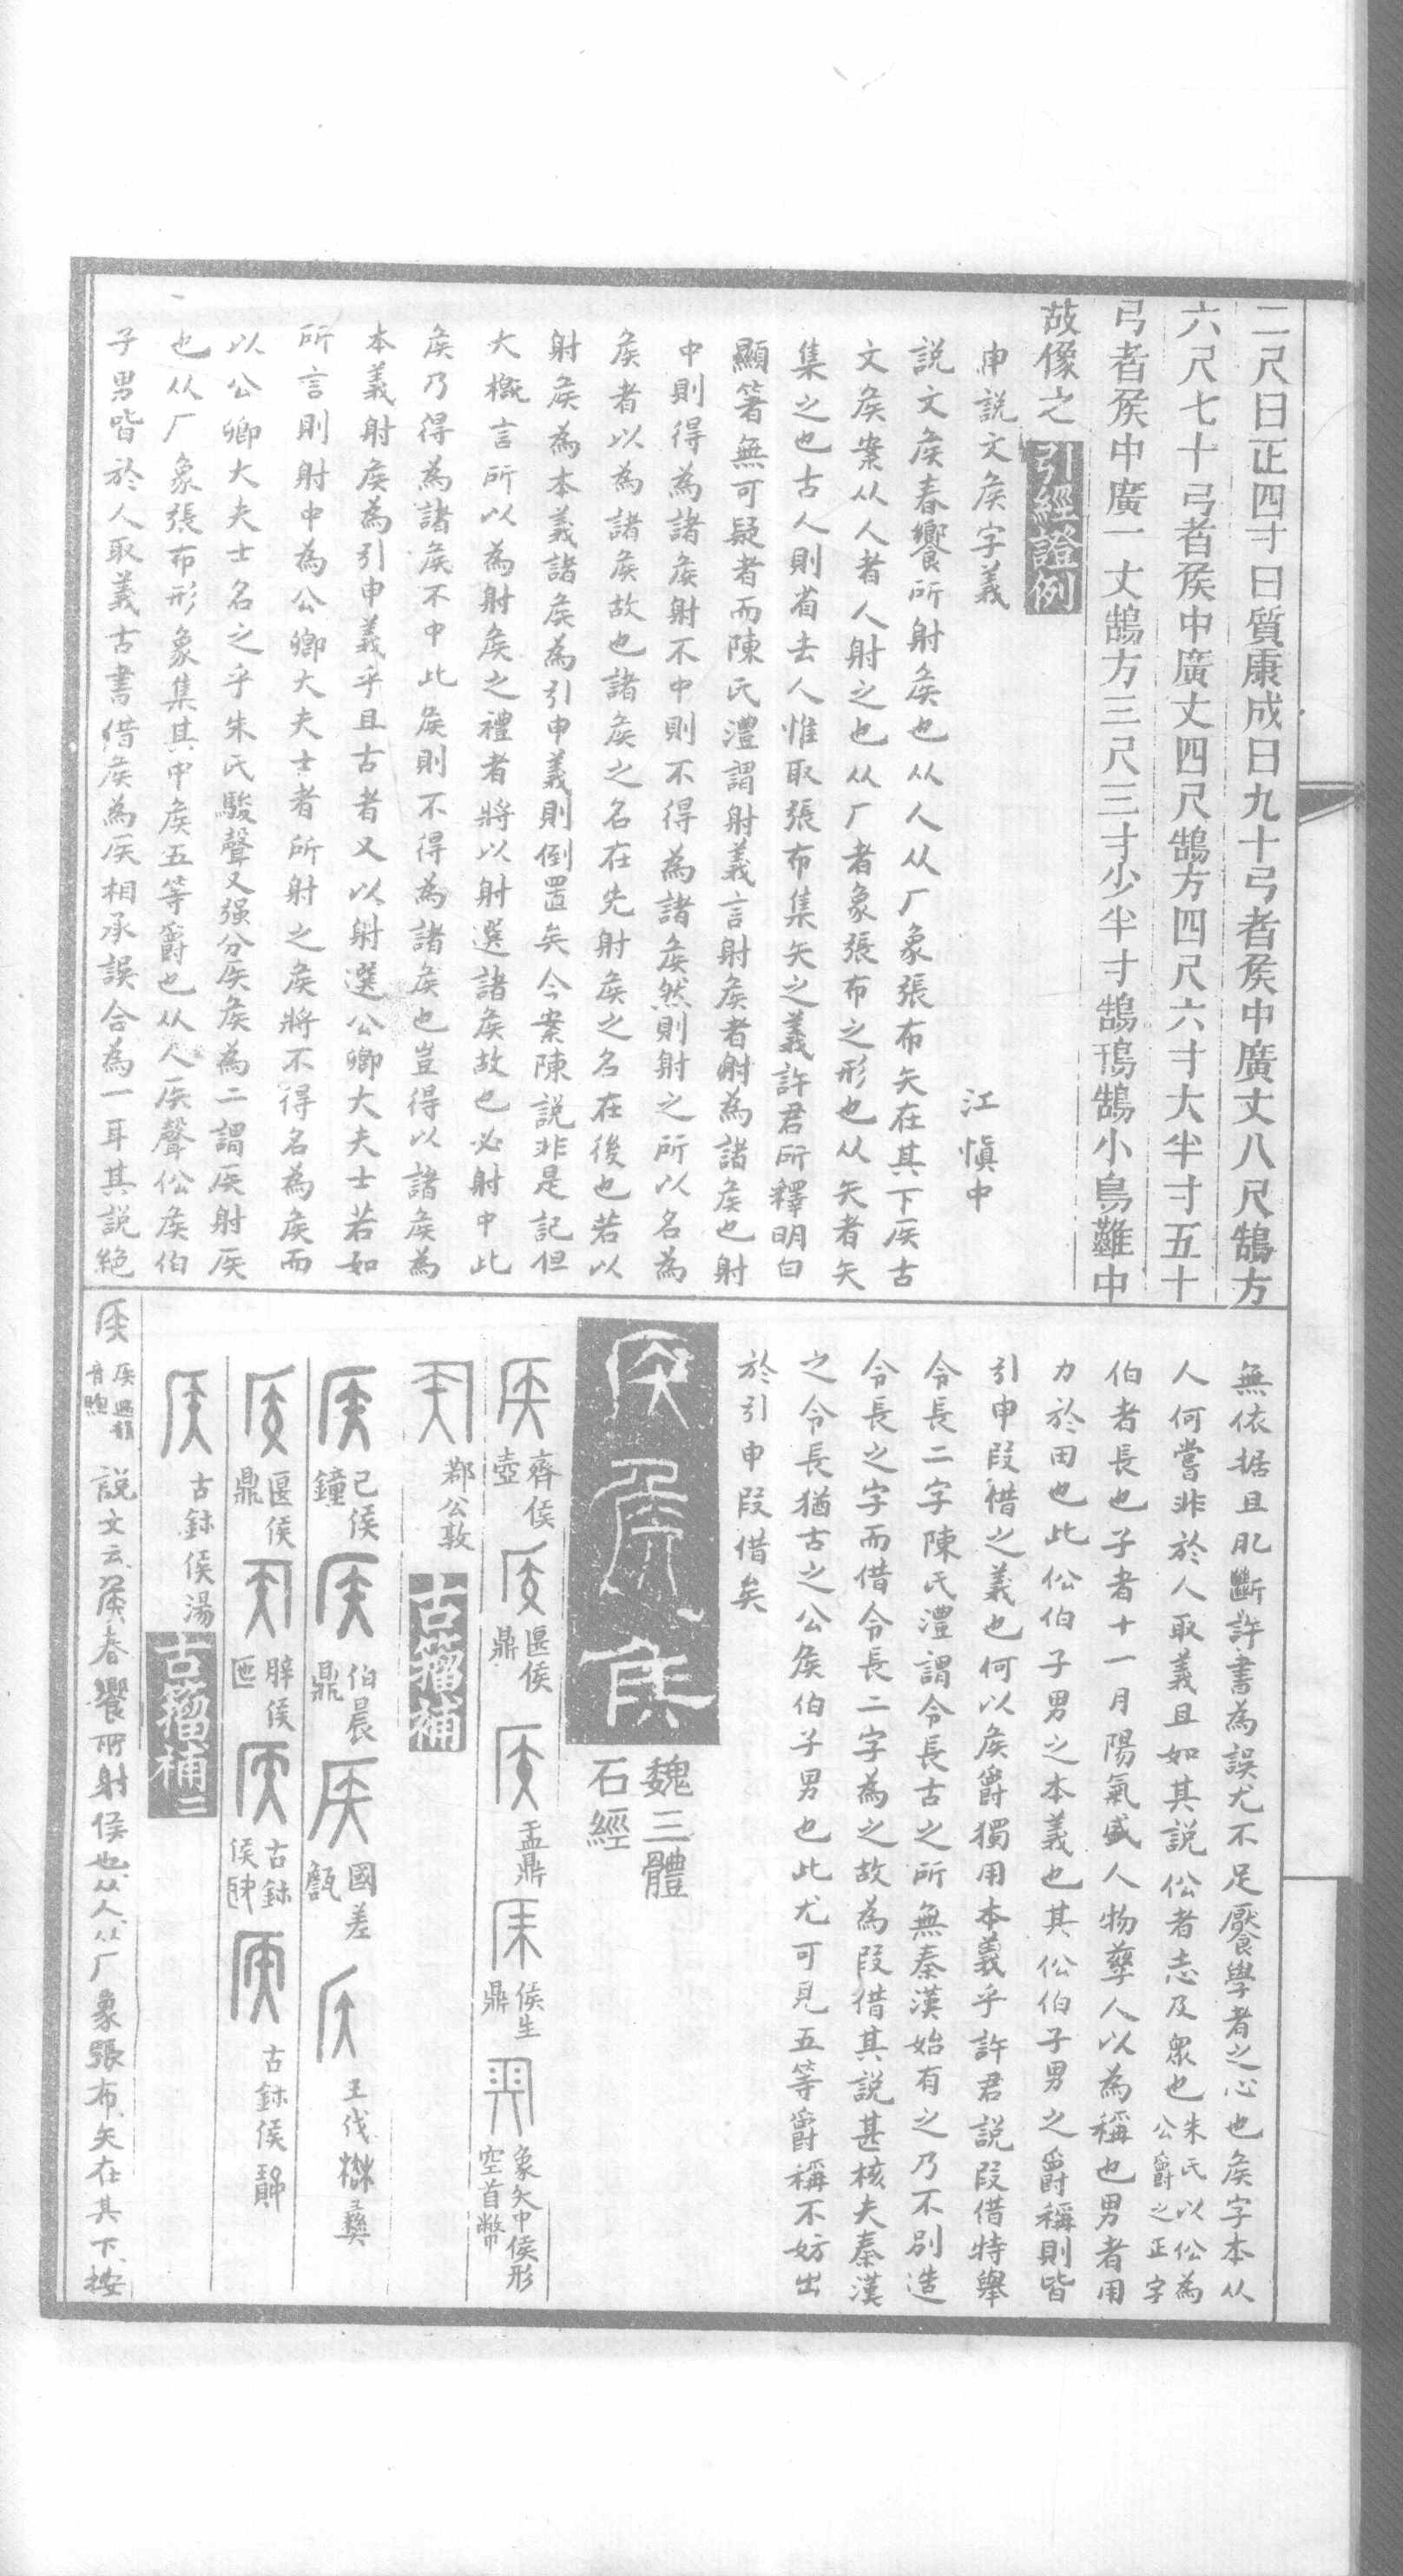 二尺曰正四寸曰質康成曰九十弓者矦中廣丈八尺鵠方
六尺七十弓者矦中廣丈四尺鵠方四尺六寸大半寸五十
弓者矦中廣一丈鵠方三尺三寸少半寸鵠鳱鵠小鳥難中
故像之 引經證例
申說文矦字義
江慎中
說文矦春饗所射矦也从人从厂象張布矢在其下𥎦古
文矦案从人者人射之也从厂者象張布之形也从矢者矢
集之也古人則省去人惟取張布集矢之義許君所釋明白
顯箸無可疑者而陳氏澧謂射義言射矦者射為諸矦也射
中則得為諸矦射不中則不得為諸矦然則射之所以名為
矦者以為諸矦故也諸矦之名在先射矦之名在後也若以
射矦為本義諸矦為引申義則倒置矣今案陳說非是記但
大概言所以為射矦之禮者將以射選諸矦故也必射中此
矦乃得為諸矦不中此矦則不得為諸矦也豈得以諸矦為
本義射矦為引申義乎且古者又以射選公卿大夫士若如
所言則射中為公卿大夫士者所射之矦將不得名為矦而
以公卿大夫士名之乎朱氏駿聲又强分𥎦矦為二謂𥎦射𥎦
也从厂象張布形象集其中矦五等爵也从人𥎦聲伀矦伯
子男皆於人取義古書借矦為𥎦相承誤合為一耳其說絕
無依据且肊斷許書為誤尤不足饜學者之心也矦字本从
人何嘗非於人取義且如其說伀者志及衆也 朱氏以伀為
公爵之正字
伯者長也子者十一月陽氣盛人物孳人以為稱也男者用
力於田也此伀伯子男之本義也其伀伯子男之爵稱則皆
引申叚借之義也何以矦爵獨用本義乎許君說叚借特舉
令長二字陳氏澧謂令長古之所無秦漢始有之乃不別造
令長之字而借令長二字為之故為叚借其說甚核夫秦漢
之令長猶古之公矦伯子男也此尤可見五等爵稱不妨出
於引申叚借矣
𥎦 矦 侯
魏三體
石經
齊侯
壺
匽侯
鼎
盂鼎
侯生
鼎
象矢中侯形
空首幣
鄀公敦
古籀補
己侯
鐘
伯晨
鼎
國差
𦉜
王伐𨛭彝
匽侯
鼎
辥侯
匜
古鉨
侯
古鉨侯
古鉨侯湯
古籀補二
𥎦
說文云矦春饗所射侯也从人从厂象張布矢在其下按